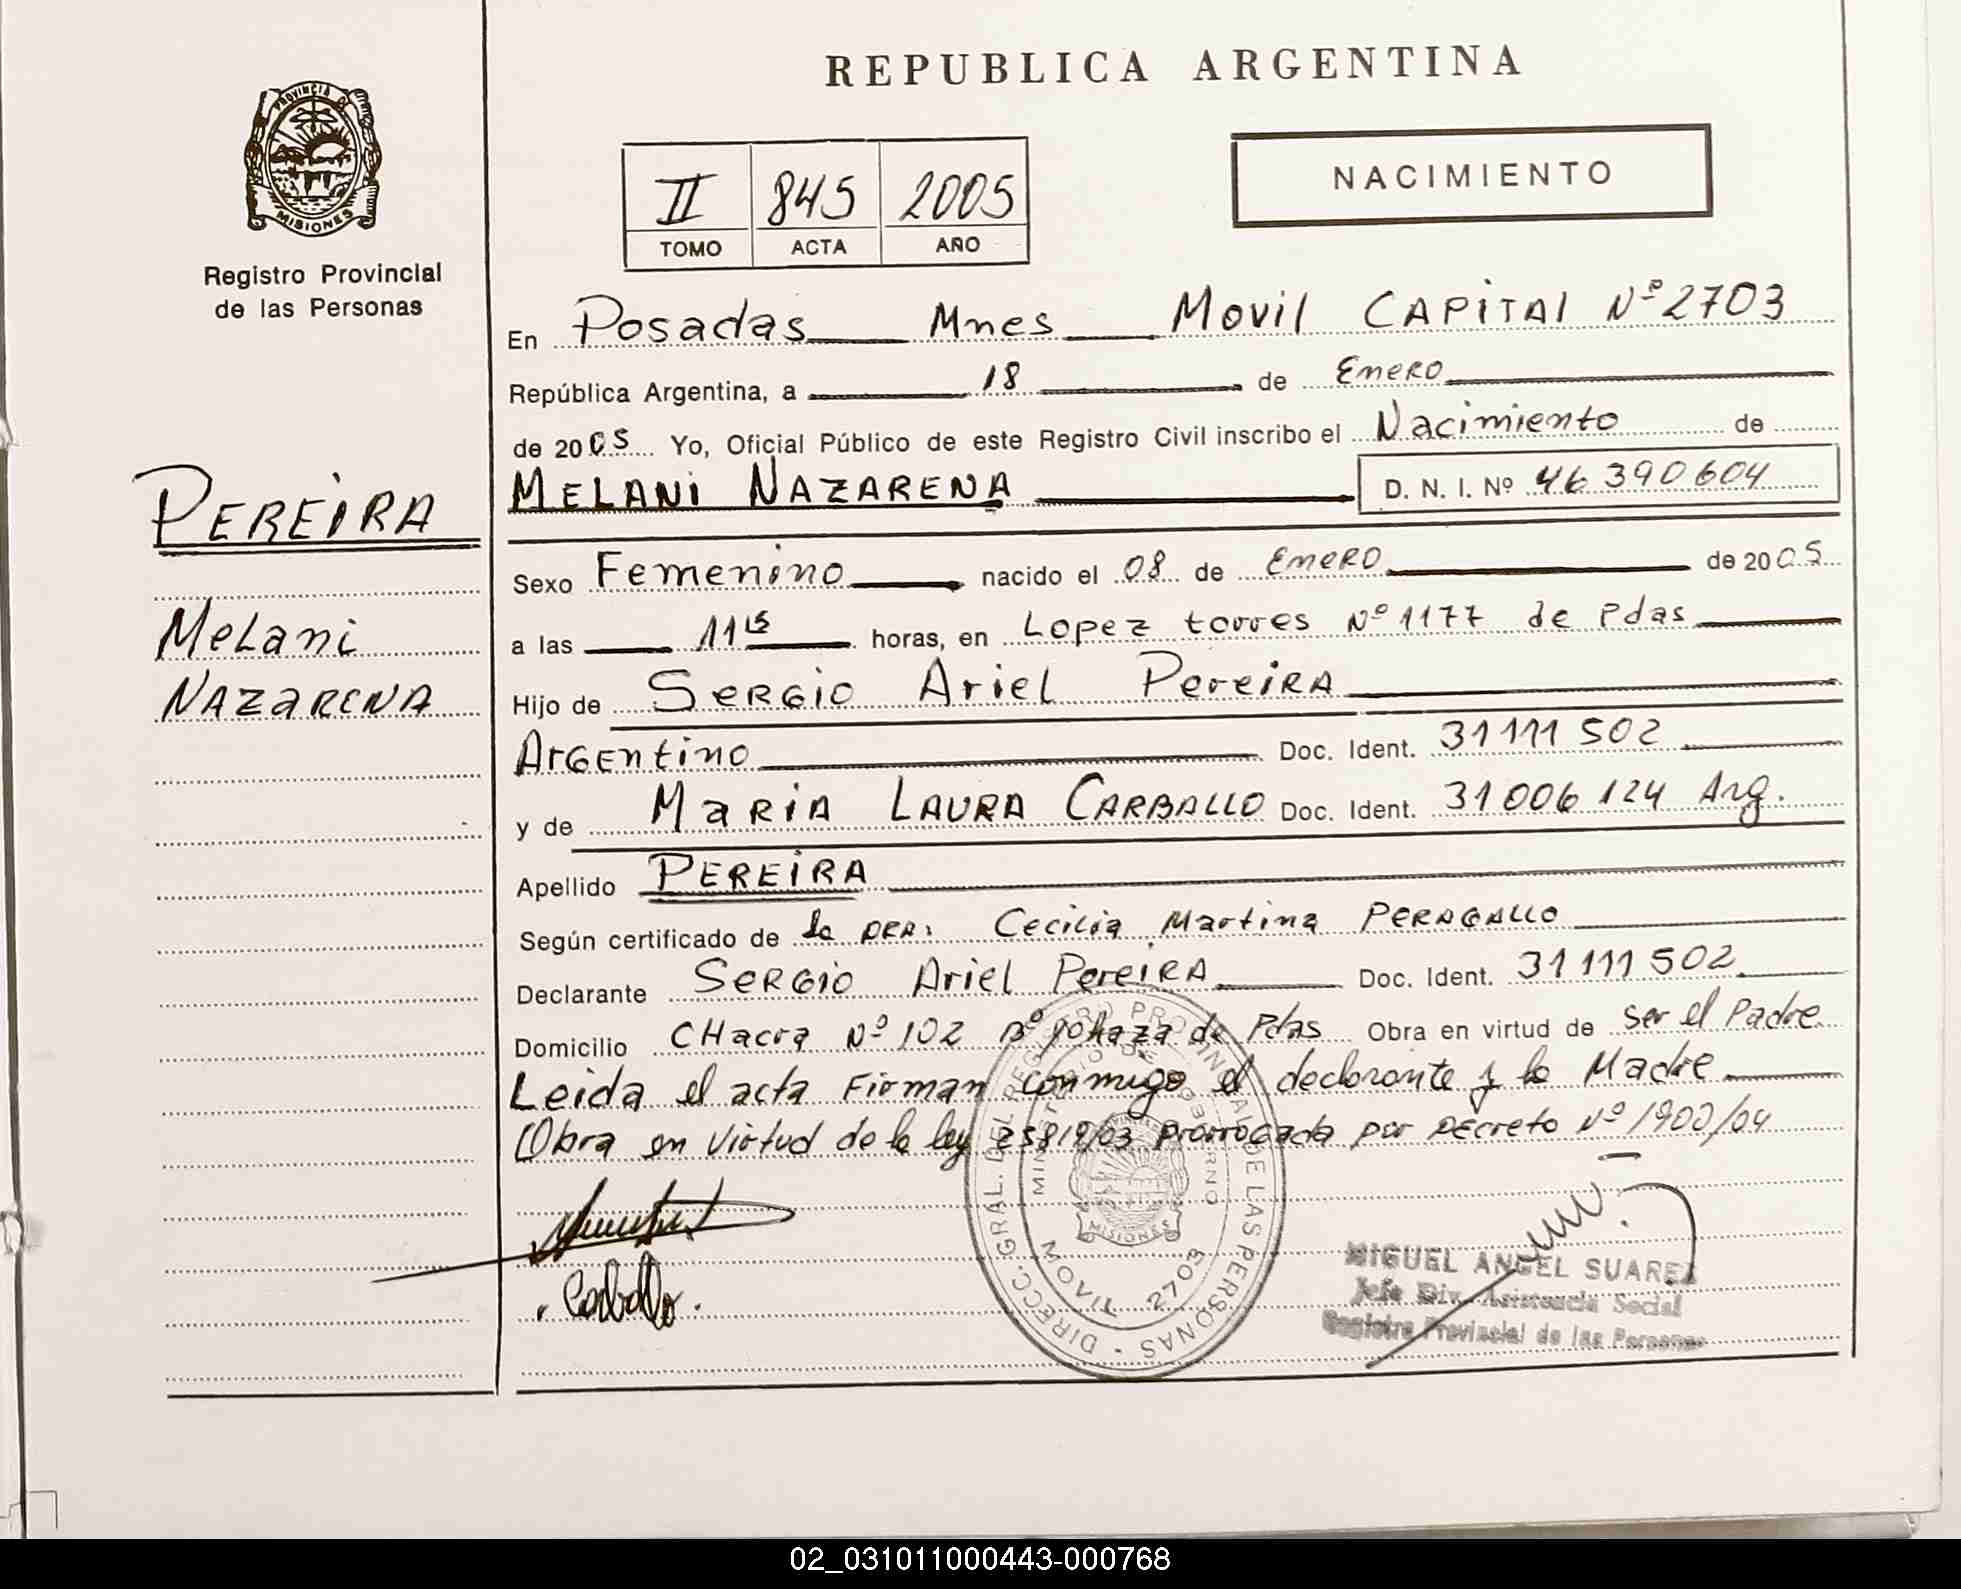 REPUBLICA ARGENTINA
PROVINCIA DE
MISIONES
Registro Provincial
de las Personas
II 845 2005
TOMO ACTA AÑO
NACIMIENTO
En Posadas Mnes Movil CAPITAL Nº 2703
República Argentina, a 18 de Enero
de 2005 Yo, Oficial Público de este Registro Civil inscribo el Nacimiento de
MELANI NAZARENA D. N. I. Nº 46 390 604
PEREIRA
Melani
NAZARENA
Sexo Femenino nacido el 08 de Enero de 2005
a las 11 15 horas, en Lopez torres Nº 1177 de Pdas
Hijo de Sergio Ariel Pereira
Argentino Doc. Ident. 31 111 502
y de Maria LAURA CARBALLO Doc. Ident. 31 006 124 Arg.
Apellido PEREIRA
Según certificado de la DRA: Cecilia Martina PERAGALLO
Declarante Sergio Ariel Pereira Doc. Ident. 31 111 502
Domicilio CHacra Nº 102 Bº de Pdas Obra en virtud de ser el Padre
Leida el acta Firman conmigo el declarante y la Madre
Obra en virtud de la ley 25819/03 prorrogada por Decreto Nº 1900/04
Carballo
DIRECC. GRAL. DEL REGISTRO PROVINCIAL DE LAS PERSONAS
MINISTERIO DE GOBIERNO
MISIONES
MOVIL 2703
MIGUEL ANGEL SUAREZ
Jefe Div. Asistencia Social
Registro Provincial de las Personas
02_031011000443-000768